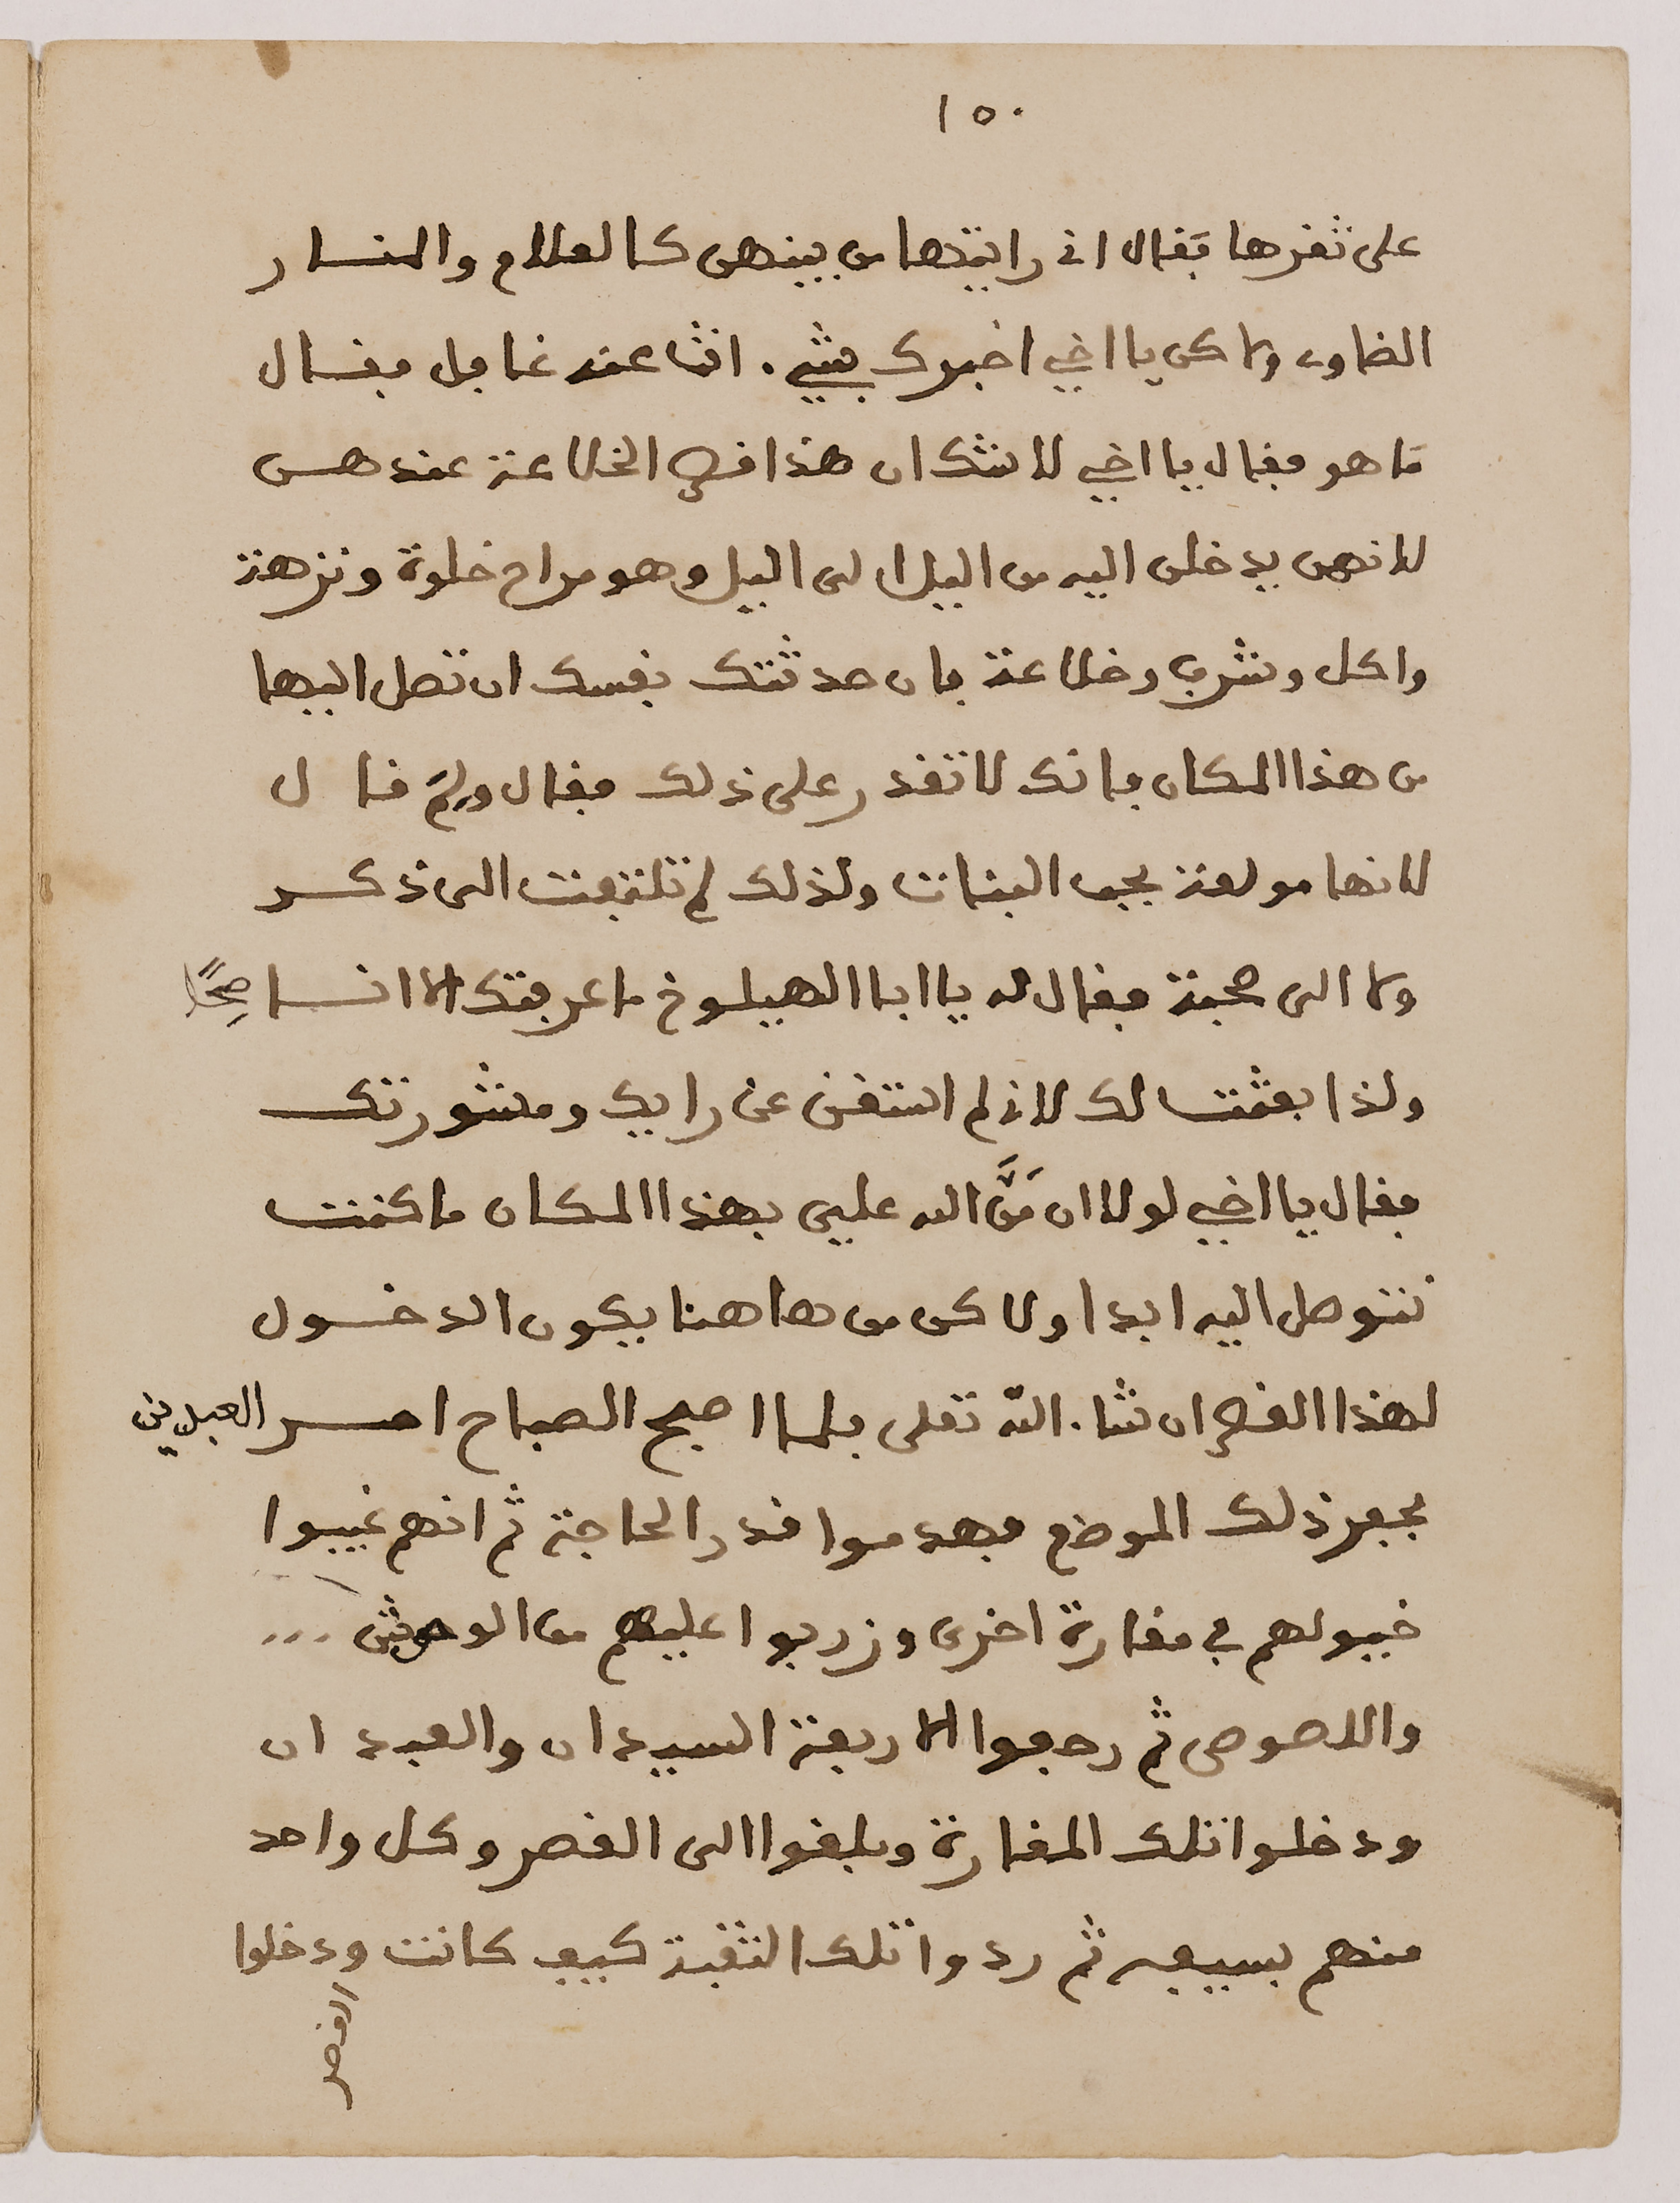 ١٥٠
على ثغرها فقال اني رايتها من بينهن كالعلام والمنار
الضاوى ولاكن يا اخي اخبرك بشيء انت عنه غافل فقال
ما هو فقال يا اخي لا شك ان هذا قصر الخلاعة عندهن
لانهن يدخلن اليه من اليل الى اليل وهو مراح خلوة ونزهة
واكل وشرب وخلاعة فان حدثتك نفسك ان تصل اليها
من هذا المكان فانك لا تقدر على ذلك فقال ولِمَ قال
لانها مولعة بحب البنات ولذلك لم تلتفت الى ذكر
ولا الى محبة فقال له يا ابا الهيلوخ ما عرفتك الا انسا صحًا
ولذا بعثت لك لاني لم استغن عن رايك ومشورتك
فقال يا اخي لولا ان مَنَّ الله عليي بهذا المكان ما كنت
تتوصل اليه ابدا ولاكن من هاهنا يكون الدخول
لهذا القصر ان شاء الله تعلى فلما اصبح الصباح امر العبدين
بحفر ذلك الموضع فهدموا قدر الحاجة ثم انهم غيبوا
خيولهم في مغارة اخرى وزربوا عليهم من الوحوش ...
واللصوص ثم رجعوا الاربعة السيدان والعبدان
ودخلوا تلك المغارة وبلغوا الى القصر وكل واحد
منهم بسيفه ثم ردوا تلك الثقبة كيف كانت ودخلوا
القصر